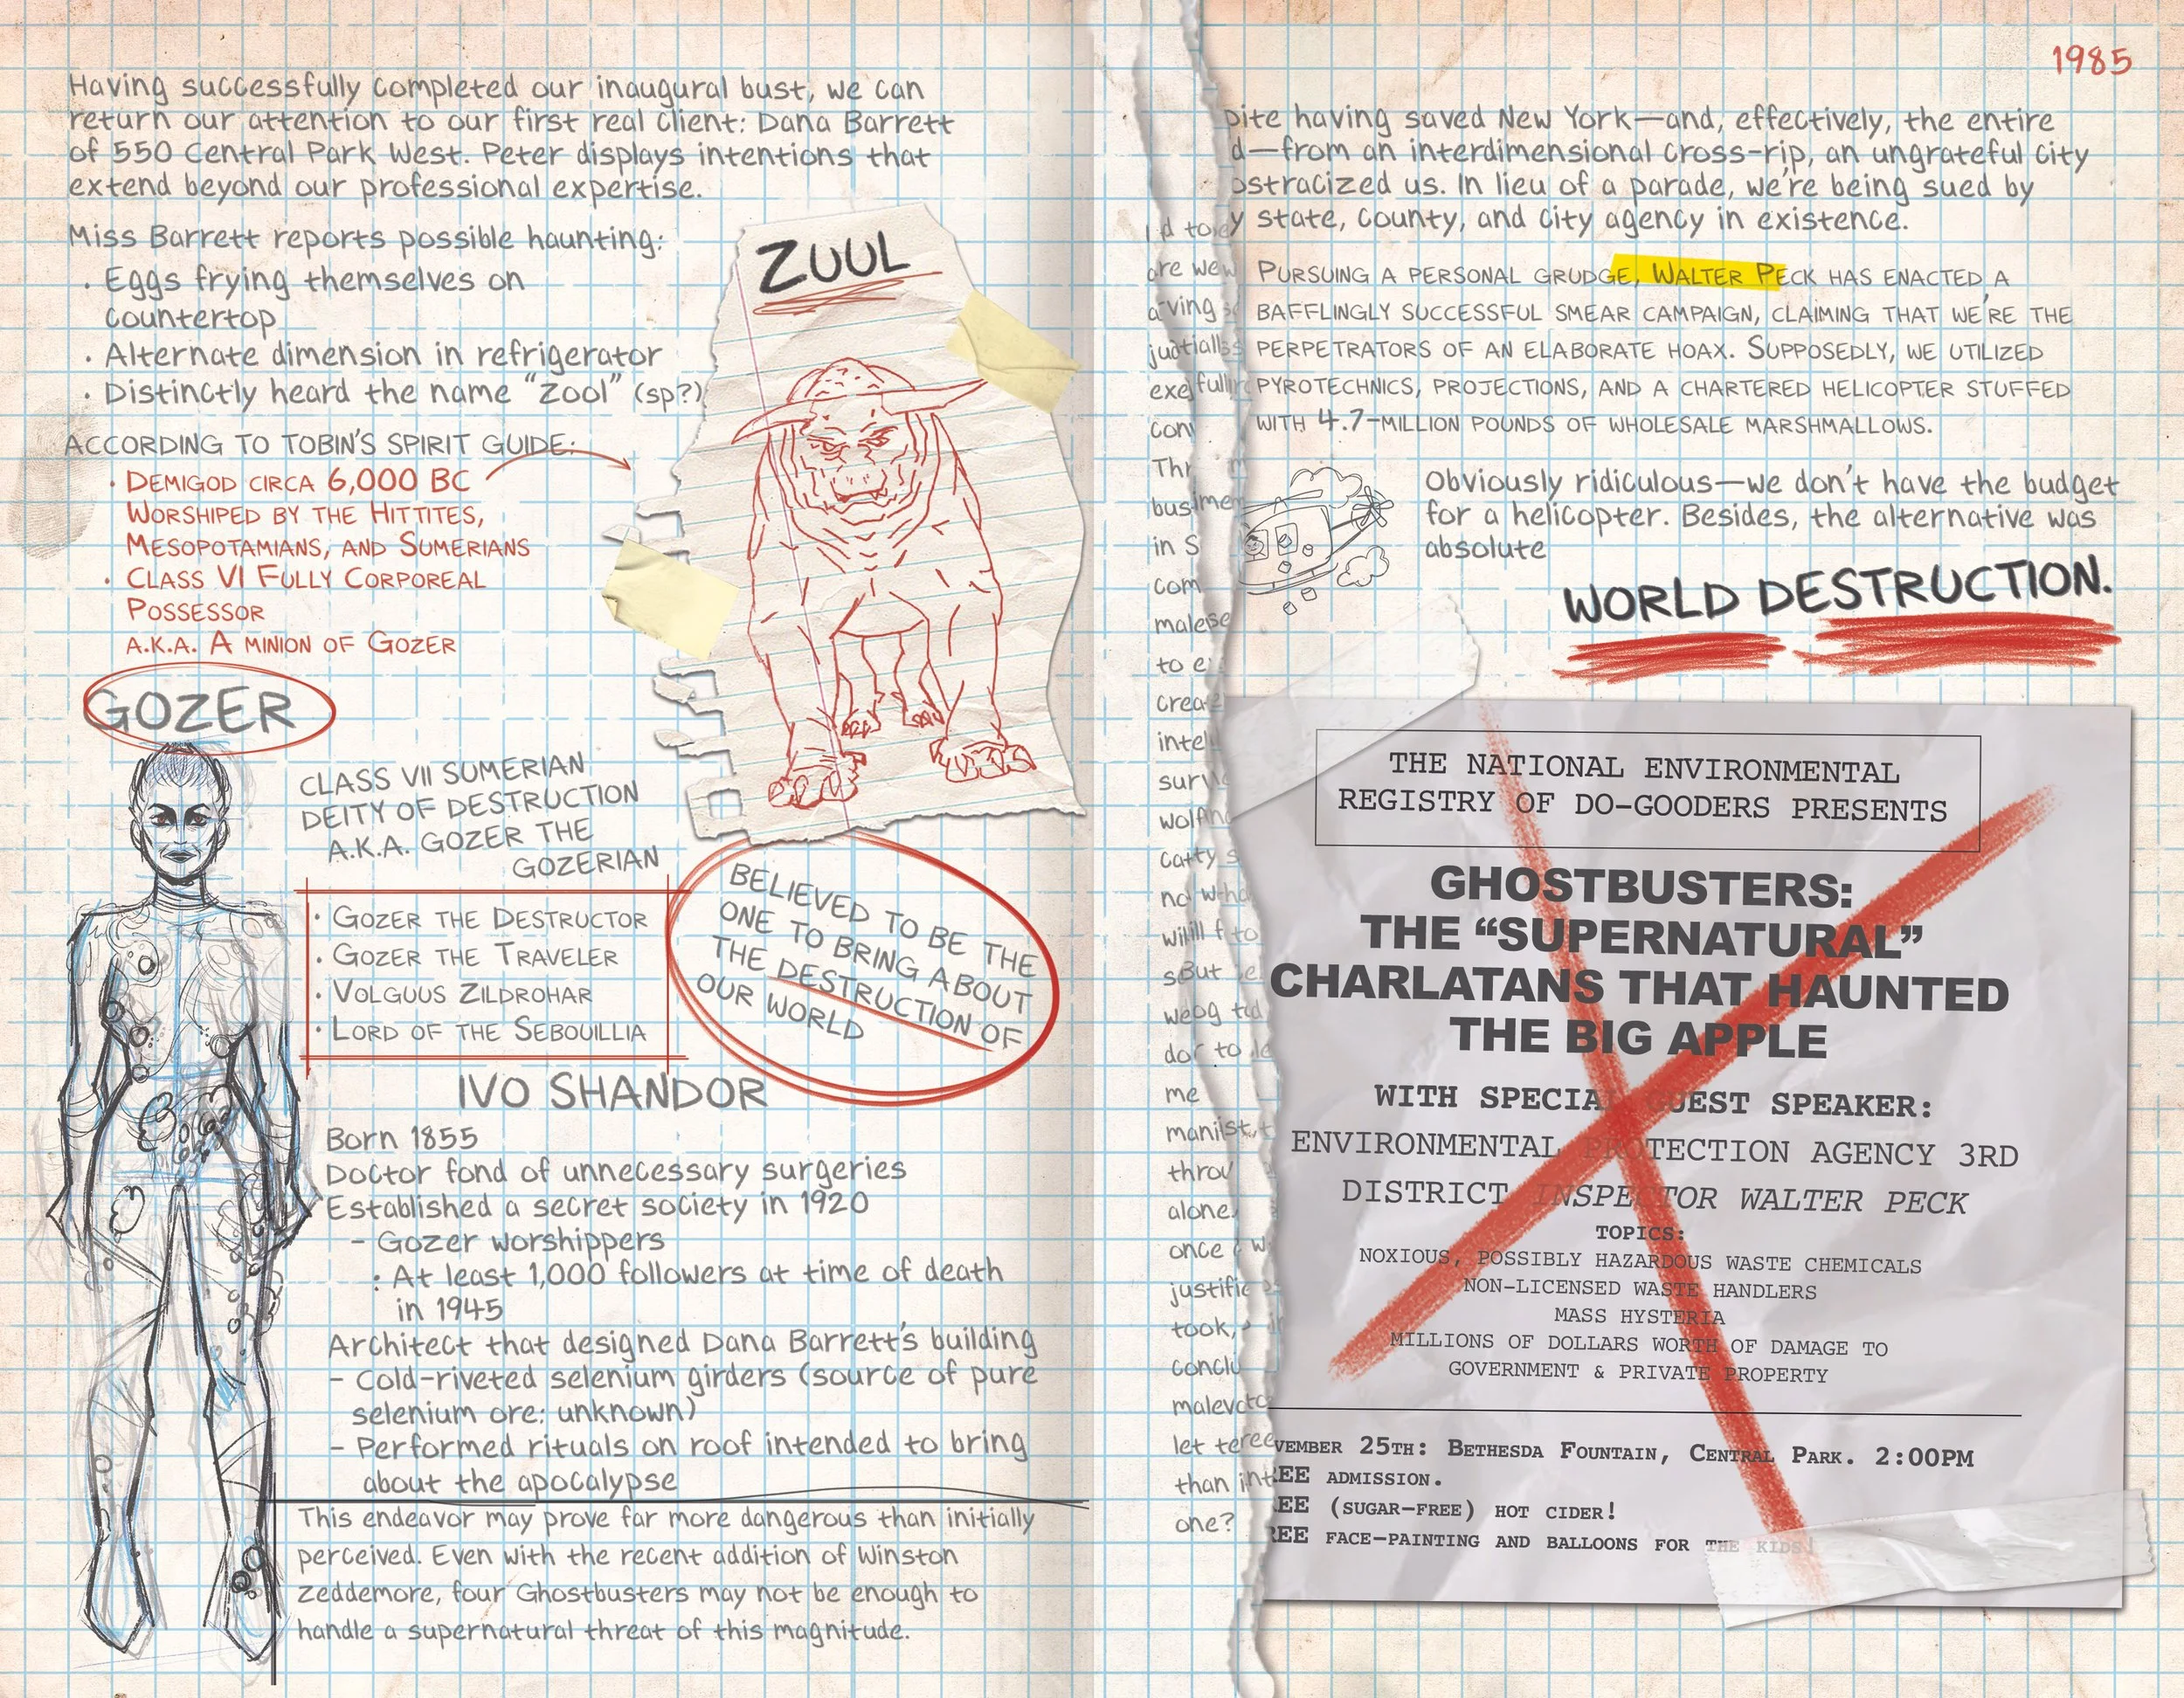 Having successfully completed our inaugural bust, we can
return our attention to our first real client: Dana Barrett
of 550 Central Park West. Peter displays intentions that
extend beyond our professional expertise.
Miss Barrett reports possible haunting:
· Eggs frying themselves on
countertop
· Alternate dimension in refrigerator
· Distinctly heard the name “Zool” (sp?)
ACCORDING TO TOBIN'S SPIRIT GUIDE:
· DEMIGOD CIRCA 6,000 BC
WORSHIPED BY THE HITTITES,
MESOPOTAMIANS, AND SUMERIANS
· CLASS VI FULLY CORPOREAL
POSSESSOR
A.K.A. A MINION OF GOZER
ZUUL
GOZER
CLASS VII SUMERIAN
DEITY OF DESTRUCTION
A.K.A. GOZER THE
GOZERIAN
· GOZER THE DESTRUCTOR
· GOZER THE TRAVELER
· VOLGUUS ZILDROHAR
· LORD OF THE SEBOUILLIA
BELIEVED TO BE THE
ONE TO BRING ABOUT
THE DESTRUCTION OF
OUR WORLD
IVO SHANDOR
Born 1855
Doctor fond of unnecessary surgeries
Established a secret society in 1920
- Gozer worshippers
: At least 1,000 followers at time of death
in 1945
Architect that designed Dana Barrett's building
- Cold-riveted selenium girders (source of pure
selenium ore: unknown)
- Performed rituals on roof intended to bring
about the apocalypse
This endeavor may prove far more dangerous than initially
perceived. Even with the recent addition of Winston
Zeddemore, four Ghostbusters may not be enough to
handle a supernatural threat of this magnitude.
in S
to
me
alone.
once
took,
one?
1985
pite having saved New York—and, effectively, the entire
d—from an interdimensional cross-rip, an ungrateful city
ostracized us. In lieu of a parade, we're being sued by
y state, county, and city agency in existence.
PURSUING A PERSONAL GRUDGE, WALTER PECK HAS ENACTED A
BAFFLINGLY SUCCESSFUL SMEAR CAMPAIGN, CLAIMING THAT WE'RE THE
PERPETRATORS OF AN ELABORATE HOAX. SUPPOSEDLY, WE UTILIZED
PYROTECHNICS, PROJECTIONS, AND A CHARTERED HELICOPTER STUFFED
WITH 4.7-MILLION POUNDS OF WHOLESALE MARSHMALLOWS.
Obviously ridiculous—we don't have the budget
for a helicopter. Besides, the alternative was
absolute
WORLD DESTRUCTION.
THE NATIONAL ENVIRONMENTAL
REGISTRY OF DO-GOODERS PRESENTS
GHOSTBUSTERS:
THE “SUPERNATURAL”
CHARLATANS THAT HAUNTED
THE BIG APPLE
WITH SPECIAL GUEST SPEAKER:
ENVIRONMENTAL PROTECTION AGENCY 3RD
DISTRICT INSPECTOR WALTER PECK
TOPICS:
NOXIOUS, POSSIBLY HAZARDOUS WASTE CHEMICALS
NON-LICENSED WASTE HANDLERS
MASS HYSTERIA
MILLIONS OF DOLLARS WORTH OF DAMAGE TO
GOVERNMENT & PRIVATE PROPERTY
VEMBER 25TH: BETHESDA FOUNTAIN, CENTRAL PARK. 2:00PM
EE ADMISSION.
EE (SUGAR-FREE) HOT CIDER!
REE FACE-PAINTING AND BALLOONS FOR THE KIDS!